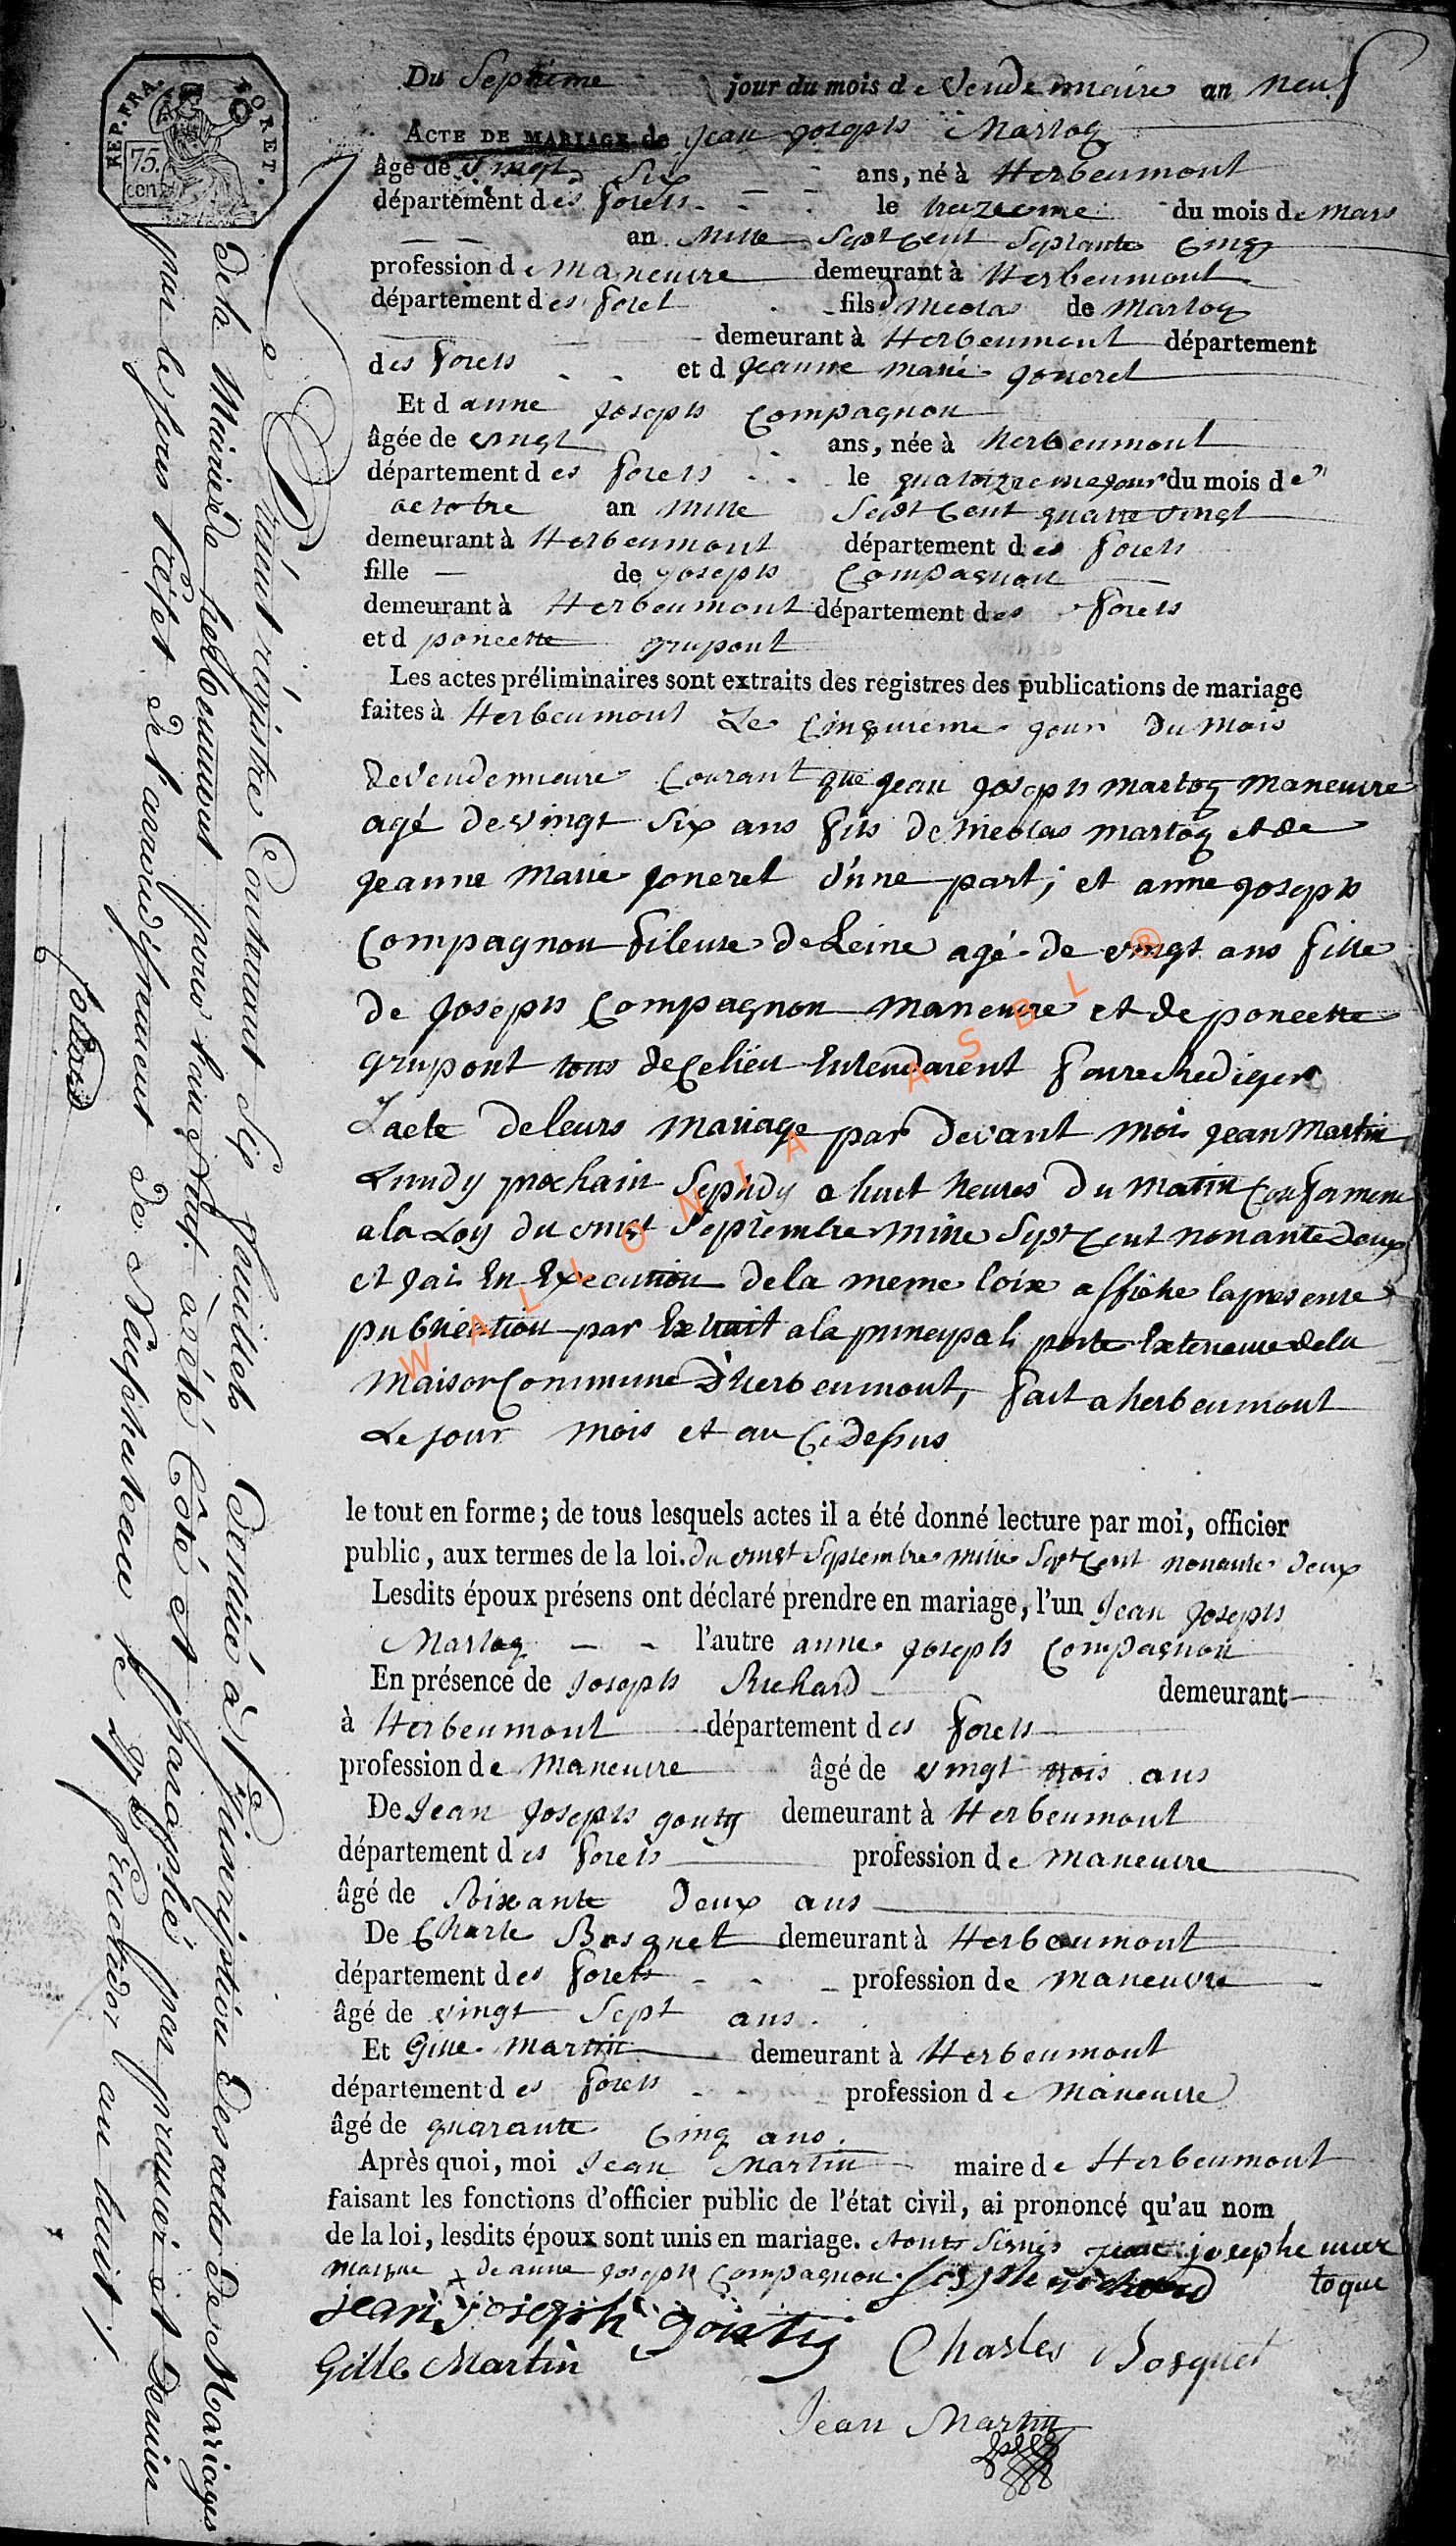 REP. FRA.
FORET.
75.
cent
Du Septieme jour du mois de Vendemiaire an neuf
ACTE DE MARIAGE de jean joseph Martoq
âgé de Vingt Six ans, né à Herbeumont
département des forets le treizieme du mois de Mars
an Mille Sept Cent Septante Cinq
profession de Maneuvre demeurant à Herbeumont
département des foret fils Nicolas de Martoq
demeurant à Herbeumont département
des forets et d jeanne marie goneret
Et d anne joseph Compagnon
âgée de vingt ans, née à herbeumont
département des forets le quatorzieme jour du mois de
octobre an Mille Sept Cent quatre vingt
demeurant à Herbeumont département des forets
fille de joseph Compagnon
demeurant à Herbeumont département des forets
et d poncette grupont
Les actes préliminaires sont extraits des registres des publications de mariage
faites à Herbeumont Le Cinquieme jour du Mois
de Vendemieure Courant que jean joseph martoq maneuvre
agé de vingt six ans fils de nicolas martoq et de
jeanne marie joneret d'une part; et anne joseph
Compagnon fileuse de Leine agé de vingt ans fille
de joseph Compagnon maneuvre et de poncette
grupont tous de Celieu Entendarent faire Rediger
Lacte de leurs mariage par devant moi jean Martin
Lundy prochain Septidy a huit heures du matin Conformeme
a la Loy du vingt Septembre mille Sept Cent nonante deux
et jai En Execution de la meme loix affiche la presente
publication par Extrait a la principale porte Exterieure de la
maison Commune d'herbeumont, fait a herbeumont
Le jour mois et an Ci dessus
le tout en forme; de tous lesquels actes il a été donné lecture par moi, officier
public, aux termes de la loi. du vingt Septembre mille Sept Cent nonante deux
Lesdits époux présens ont déclaré prendre en mariage, l'un jean joseph
Martoq l'autre anne joseph Compagnon
En présence de joseph Richard demeurant
à Herbeumont département des forets
profession de Maneuvre âgé de vingt trois ans
De Jean joseph gouty demeurant à Herbeumont
département des forets profession de maneuvre
âgé de Soixante deux ans
De Charle Bosquet demeurant à Herbeumont
département des forets profession de maneuvre
âgé de vingt Sept ans.
Et Gille Martin demeurant à Herbeumont
département des forets profession de Maneuvre
âgé de quarante Cinq ans.
Après quoi, moi Jean Martin maire de Herbeumont
faisant les fonctions d'officier public de l'état civil, ai prononcé qu'au nom
de la loi, lesdits époux sont unis en mariage. et ont Signés jean josephe mar
toque
marque + de anne joseph Compagnon. joseph richard
jean joseph goutij
Charles Bosquet
Gille Martin
Jean Martin
Le Présent régistre Contenant Six feuillets Destiné à l'inscription Des actes de Mariages
de la Mairie de herbeumont pour l'an Neuf a été Côté et paraphé par premier et Dernier
par le sous Préfet de l'arrondissement de Neufchateau le
fructidor an huit /.
WALLONIA ASBL ®